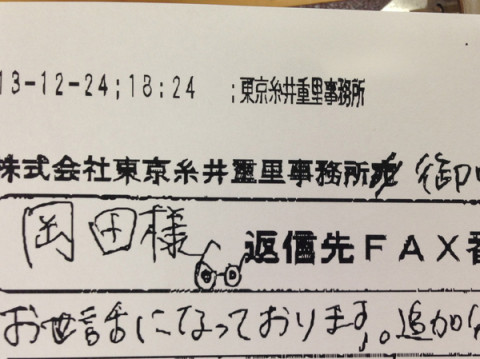 13-12-24;18:24 ;東京糸井重里事務所
株式会社東京糸井重里事務所 御中
岡田様 返信先FAX番
お世話になっております。追加